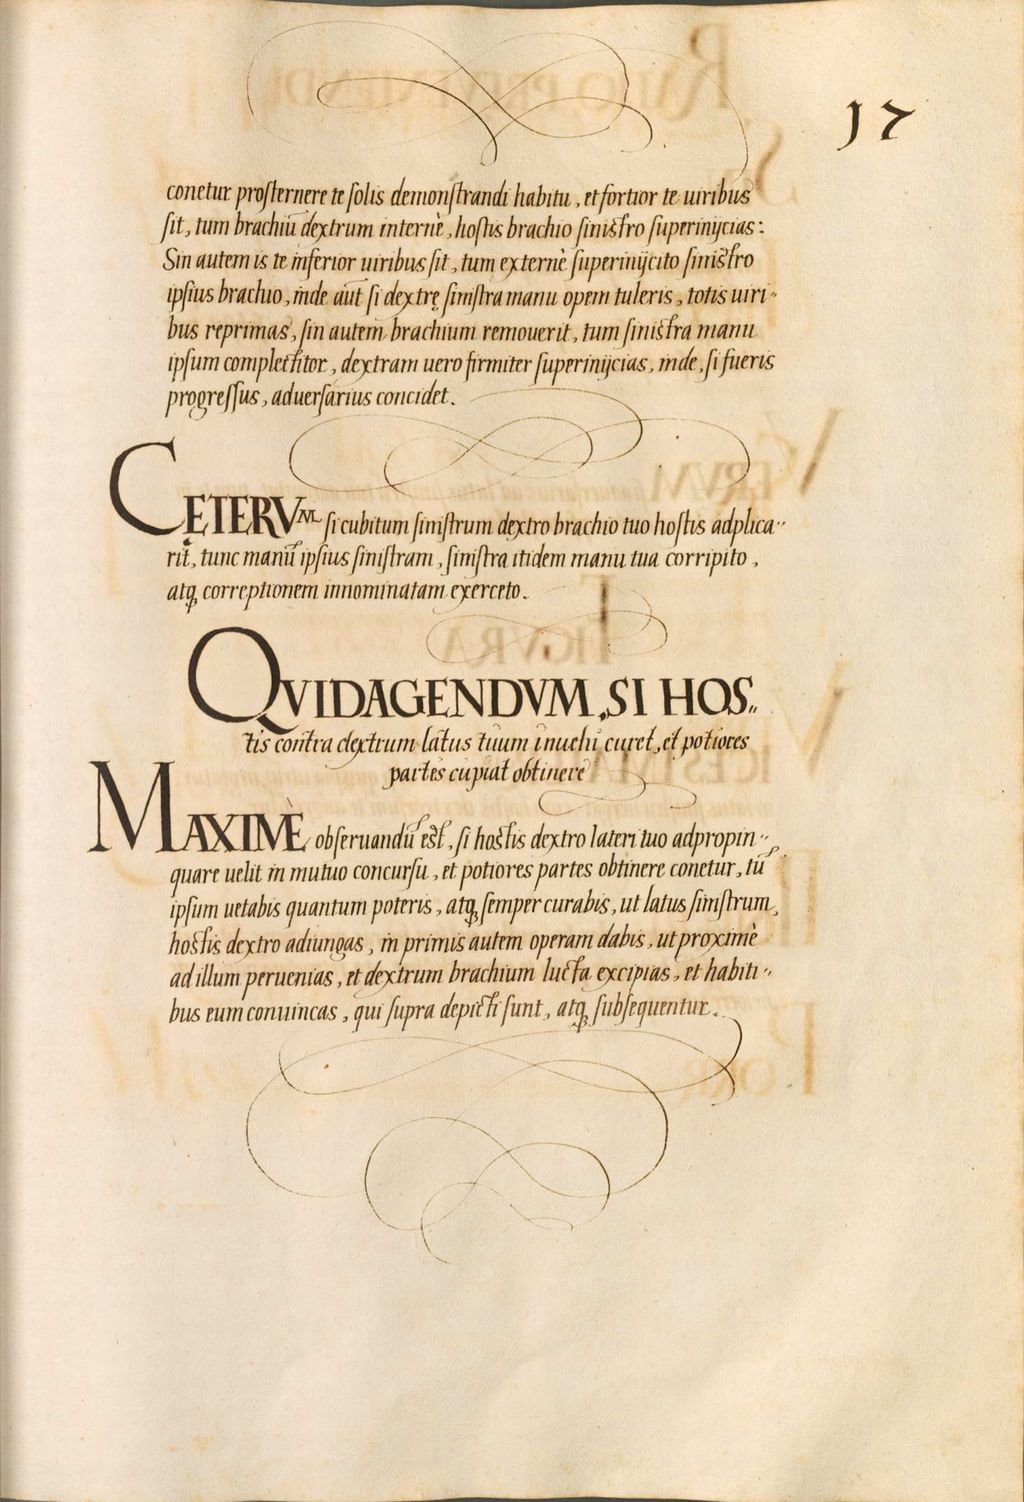 17
conetur prosternere te solis demonstrandi habitu, et fortior te uiribus
sit, tum brachiū dextrum internè, hostis brachio sinistro superinijcias:
Sin autem is te inferior uiribus sit, tum externè superinijcito sinistro
ipsius brachio, inde aūt si dextrę sinistra manu opem tuleris, totis uiri-
bus reprimas, sin autem brachium remouerit, tum sinistra manu
ipsum complectitor, dextram uero firmiter superinijcias, inde, si fueris
progressus, aduersarius concidet.
CETERVM si cubitum sinistrum dextro brachio tuo hostis adplica-
rit, tunc manū ipsius sinistram, sinistra itidem manu tua corripito,
atq̧ correptionem innominatam exerceto.
QVID AGENDVM, SI HOS-
tis contra dextrum latus tuum inuehi curet, et potiores
partes cupiat obtinere
MAXIMÈ obseruandū est, si hostis dextro lateri tuo adpropin-
quare uelit in mutuo concursu, et potiores partes obtinere conetur, tū
ipsum uetabis quantum poteris, atq̧ semper curabis, ut latus sinistrum,
hostis dextro adiungas, in primis autem operam dabis, ut proximè
ad illum peruenias, et dextrum brachium lucta excipias, et habiti-
bus eum conuincas, qui supra depicti sunt, atq̧ subsequentur.